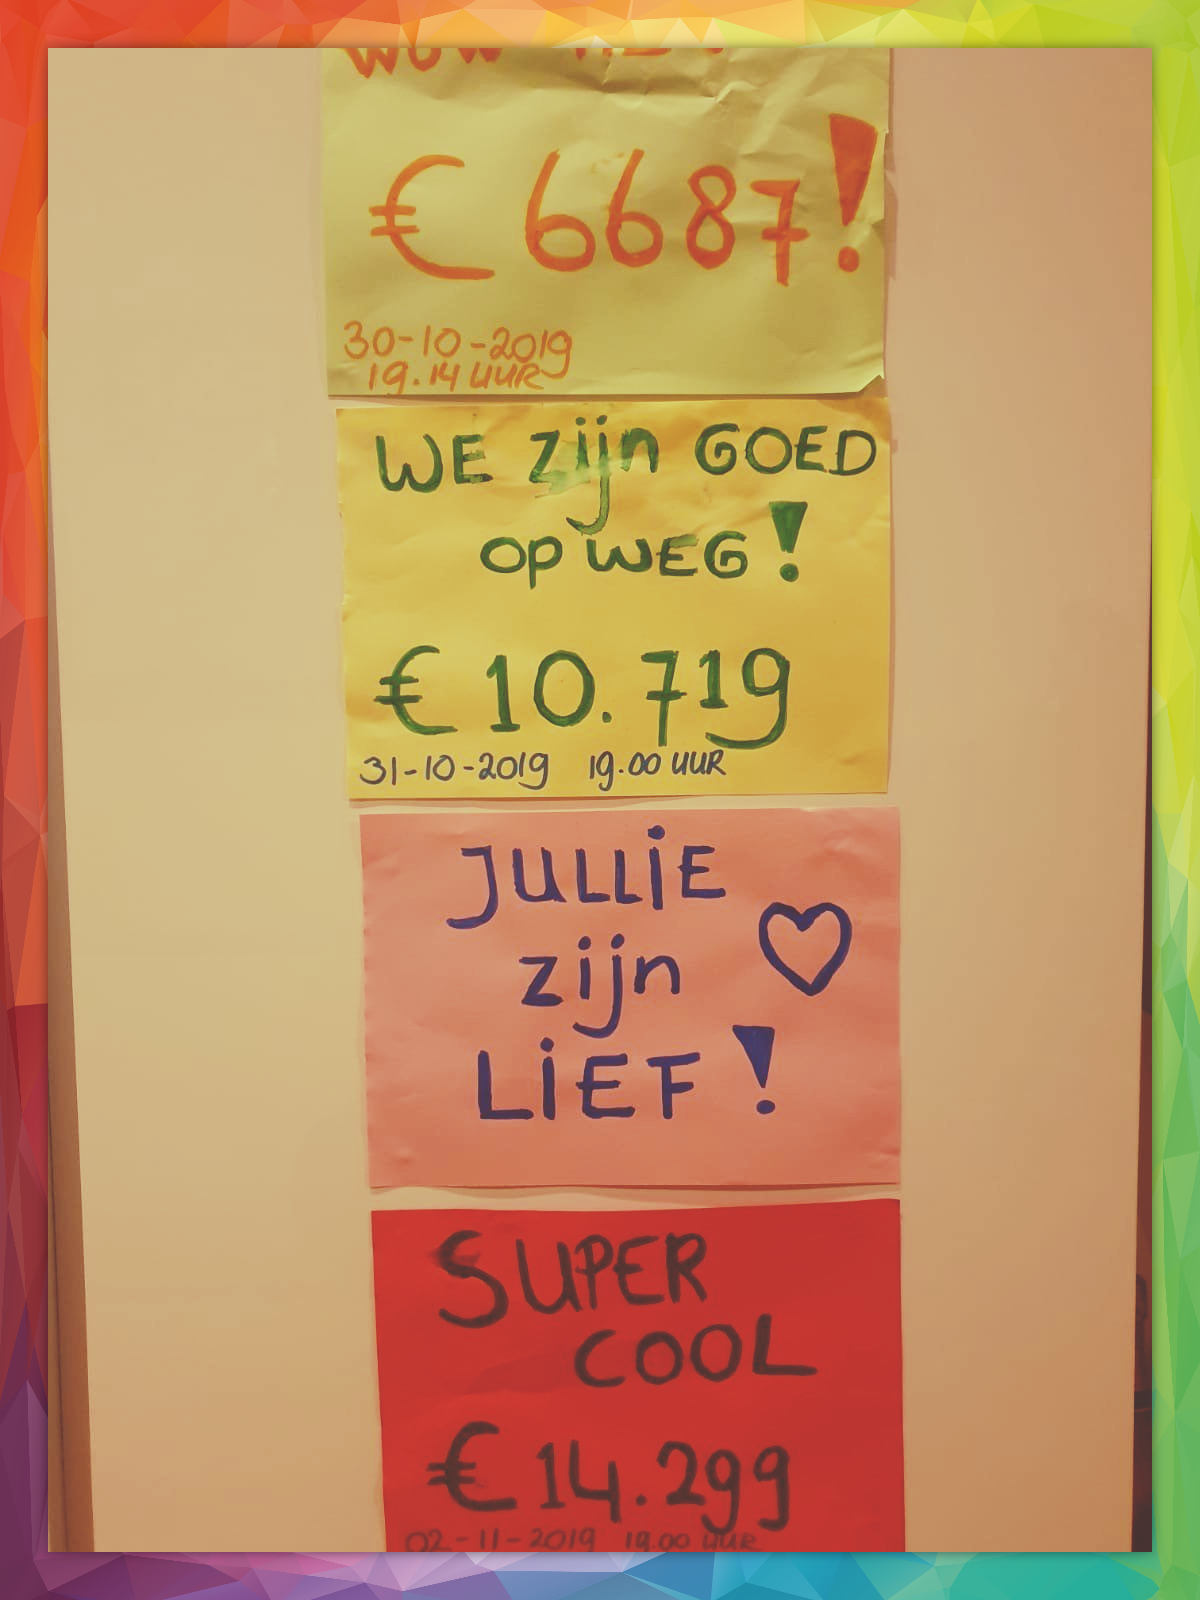 WOW
€ 6687!
30-10-2019
19.14 UUR
WE zijn GOED
OP WEG!
€ 10.719
31-10-2019 19.00 UUR
JULLiE
zijn
LiEF!
SUPER
COOL
€ 14.299
02-11-2019 19.00 UUR